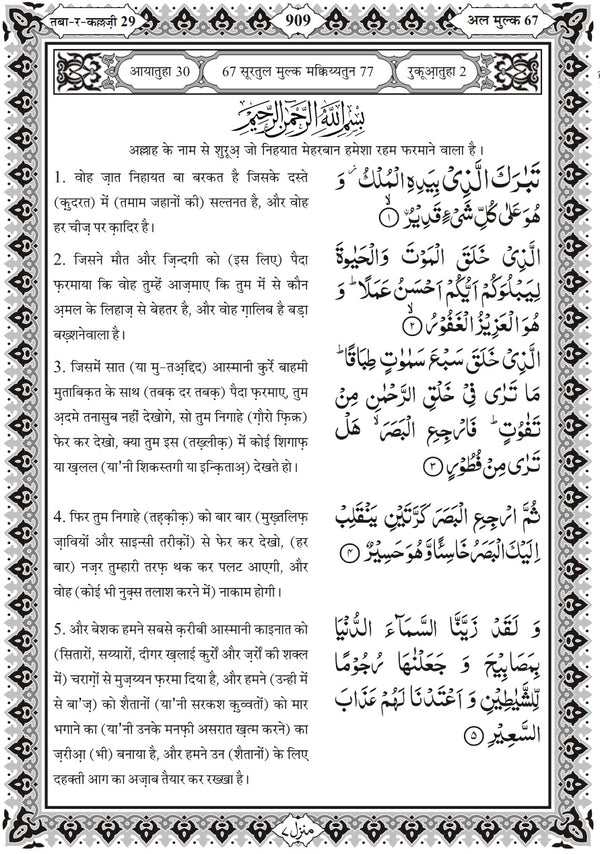 तबा-र-कल्लज़ी 29
909
अल मुल्क 67
आयातुहा 30
67 सूरतुल मुल्क मक्किय्यतुन 77
रुकूआ़तुहा 2
بِسْمِ اللّٰهِ الرَّحْمٰنِ الرَّحِيْمِ
अल्लाह के नाम से शुरूअ़ जो निहयात मेहरबान हमेशा रहम फरमाने वाला है।
1. वोह ज़ात निहायत बा बरकत है जिसके दस्ते
(क़ुदरत) में (तमाम जहानों की) सल्तनत है, और वोह
हर चीज़ पर क़ादिर है।
تَبٰرَكَ الَّذِيْ بِيَدِهِ الْمُلْكُ ؗ وَ
هُوَ عَلٰى كُلِّ شَيْءٍ قَدِيْرُۨ ۙ﴿۱﴾
2. जिसने मौत और ज़िन्दगी को (इस लिए) पैदा
फ़रमाया कि वोह तुम्हें आज़माए कि तुम में से कौन
अ़मल के लिहाज़ से बेहतर है, और वोह ग़ालिब है बड़ा
बख़्शनेवाला है।
الَّذِيْ خَلَقَ الْمَوْتَ وَ الْحَيٰوةَ
لِيَبْلُوَكُمْ اَيُّكُمْ اَحْسَنُ عَمَلًا ؕ وَ
هُوَ الْعَزِيْزُ الْغَفُوْرُ ۙ﴿۲﴾
3. जिसमें सात (या मु-तअ़द्दिद) आस्मानी कुर्रे बाहमी
मुताबिक़त के साथ (तबक़ दर तबक़) पैदा फ़रमाए, तुम
अ़दमे तनासुब नहीं देखोगे, सो तुम निगाहे (ग़ौरो फ़िक्र)
फेर कर देखो, क्या तुम इस (तख़्लीक़) में कोई शिगाफ़
या ख़लल (या'नी शिकस्तगी या इन्क़िताअ़) देखते हो।
الَّذِيْ خَلَقَ سَبْعَ سَمٰوٰتٍ طِبَاقًا ؕ
مَا تَرٰى فِيْ خَلْقِ الرَّحْمٰنِ مِنْ
تَفٰوُتٍ ؕ فَارْجِعِ الْبَصَرَ ۙ هَلْ
تَرٰى مِنْ فُطُوْرٍ ﴿۳﴾
4. फिर तुम निगाहे (तह़क़ीक़) को बार बार (मुख़्तलिफ़
ज़ावियों और साइन्सी तरीक़ों) से फेर कर देखो, (हर
बार) नज़र तुम्हारी तरफ़ थक कर पलट आएगी, और
वोह (कोई भी नुक़्स तलाश करने में) नाकाम होगी।
ثُمَّ ارْجِعِ الْبَصَرَ كَرَّتَيْنِ يَنْقَلِبْ
اِلَيْكَ الْبَصَرُ خَاسِئًا وَّ هُوَ حَسِيْرٌ ﴿۴﴾
5. और बेशक हमने सबसे क़रीबी आस्मानी काइनात को
(सितारों, सय्यारों, दीगर ख़लाई कुर्रों और ज़र्रों की शक्ल
में) चराग़ों से मुज़य्यन फ़रमा दिया है, और हमने (उन्ही में
से बा'ज़) को शैतानों (या'नी सरकश क़ुव्वतों) को मार
भगाने का (या'नी उनके मनफ़ी असरात ख़त्म करने) का
ज़रीआ़ (भी) बनाया है, और हमने उन (शैतानों) के लिए
दहक्ती आग का अज़ाब तैयार कर रख्खा है।
وَ لَقَدْ زَيَّنَّا السَّمَآءَ الدُّنْيَا
بِمَصَابِيْحَ وَ جَعَلْنٰهَا رُجُوْمًا
لِّلشَّيٰطِيْنِ وَ اَعْتَدْنَا لَهُمْ عَذَابَ
السَّعِيْرِ ﴿۵﴾
منزل ۷